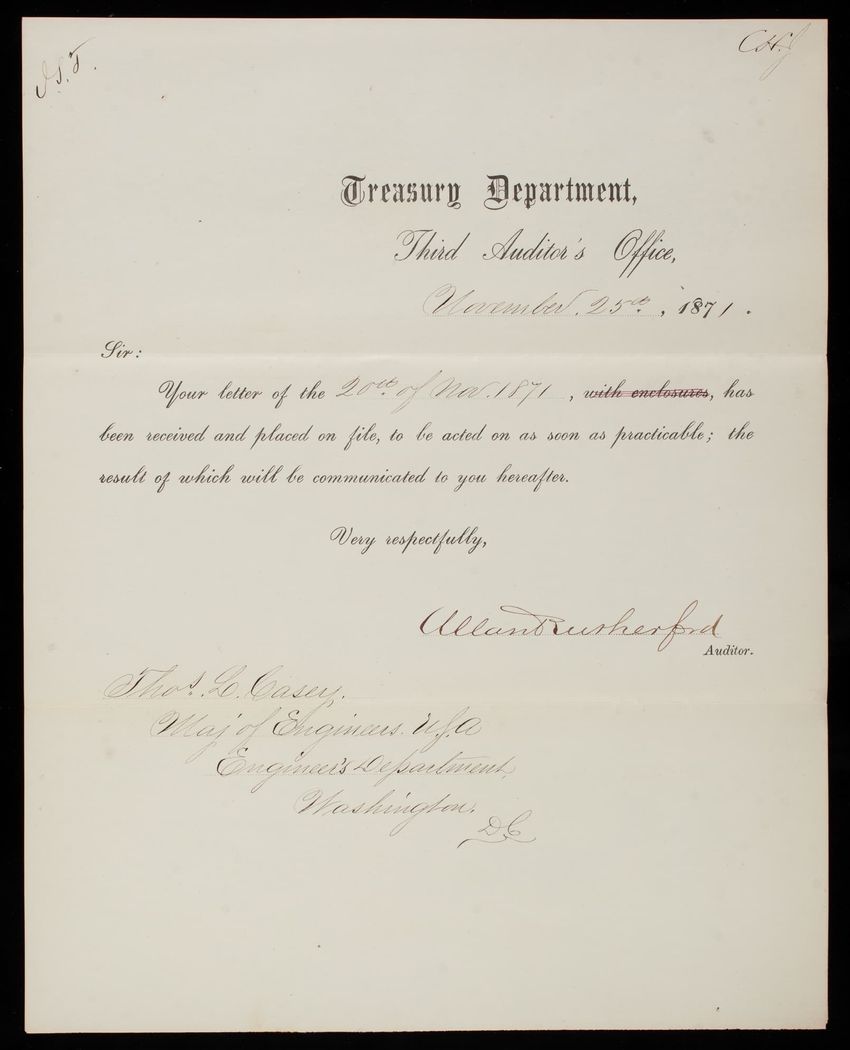 J.S.T.
Treasury Department,
Third Auditor's Office,
November. 25th., 1871.
Sir:
Your letter of the 20th. of Nov. 1871, with enclosures, has
been received and placed on file, to be acted on as soon as practicable; the
result of which will be communicated to you hereafter.
Very respectfully,
Allan Rutherford
Auditor.
Thos. L. Casey.
Maj of Engineers. U.S.A
Engineer's Department,
Washington.
D.C